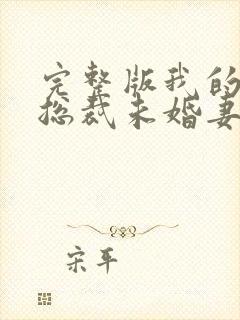 完整版我的
总裁未婚妻
宋平